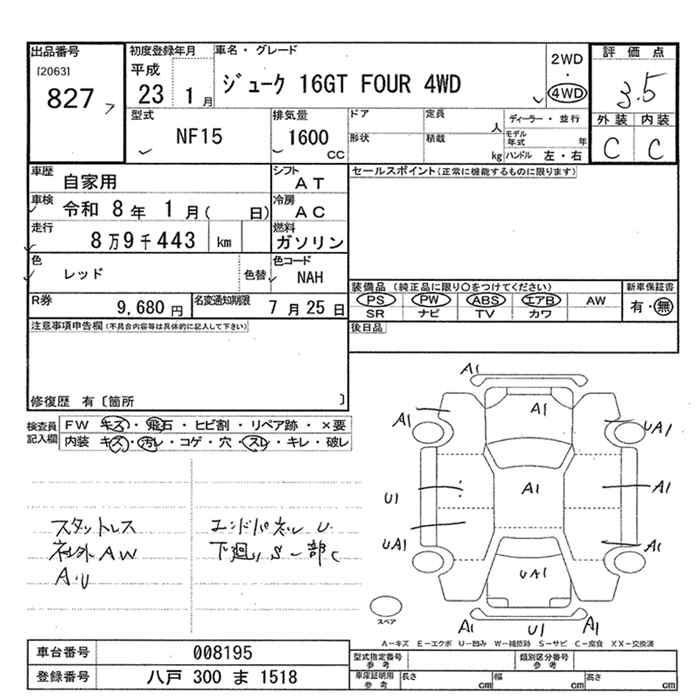 出品番号
[2063]
827
初度登録年月
平成
23 1月
車名・グレード
ジューク 16GT FOUR 4WD
2WD
・
4WD
評価点
3.5
外装 内装
C C
型式
NF15
排気量
1600
CC
ドア
形状
定員
人
積載
kg
ディーラー・並行
モデル
年式 年
ハンドル 左・右
車歴
自家用
シフト
AT
車検
令和 8年 1月( 日)
冷房
AC
走行
8万9千443 km
燃料
ガソリン
色
レッド
色替
色コード
NAH
R券
9,680円
名変通知期限
7月25日
セールスポイント(正常に機能するものに限ります)
装備品 (純正品に限り○をつけてください)
PS PW ABS エアB AW
SR ナビ TV カワ
新車保証書
有・無
後日品
注意事項申告欄(不具合内容等は具体的に記入して下さい)
修復歴 有〔箇所 〕
検査員
記入欄
FW キズ・飛石・ヒビ割・リペア跡・×要
内装 キズ・汚レ・コゲ・穴・スレ・キレ・破レ
スタットレス
社外AW
A・U
エンドパネル U・
下廻りS一部C
A1
A1
A1
UA1
U1
A1
A1
UA1
UA1
A1
A1
U1
A1
スペア
A-キズ E-エクボ U-凹み W-補修跡 S-サビ C-腐食 XX-交換済
車台番号
008195
登録番号
八戸 300 ま 1518
型式指定番号
参考
類別区分番号
参考
車庫証明用
参考
長さ cm
幅 cm
高さ cm